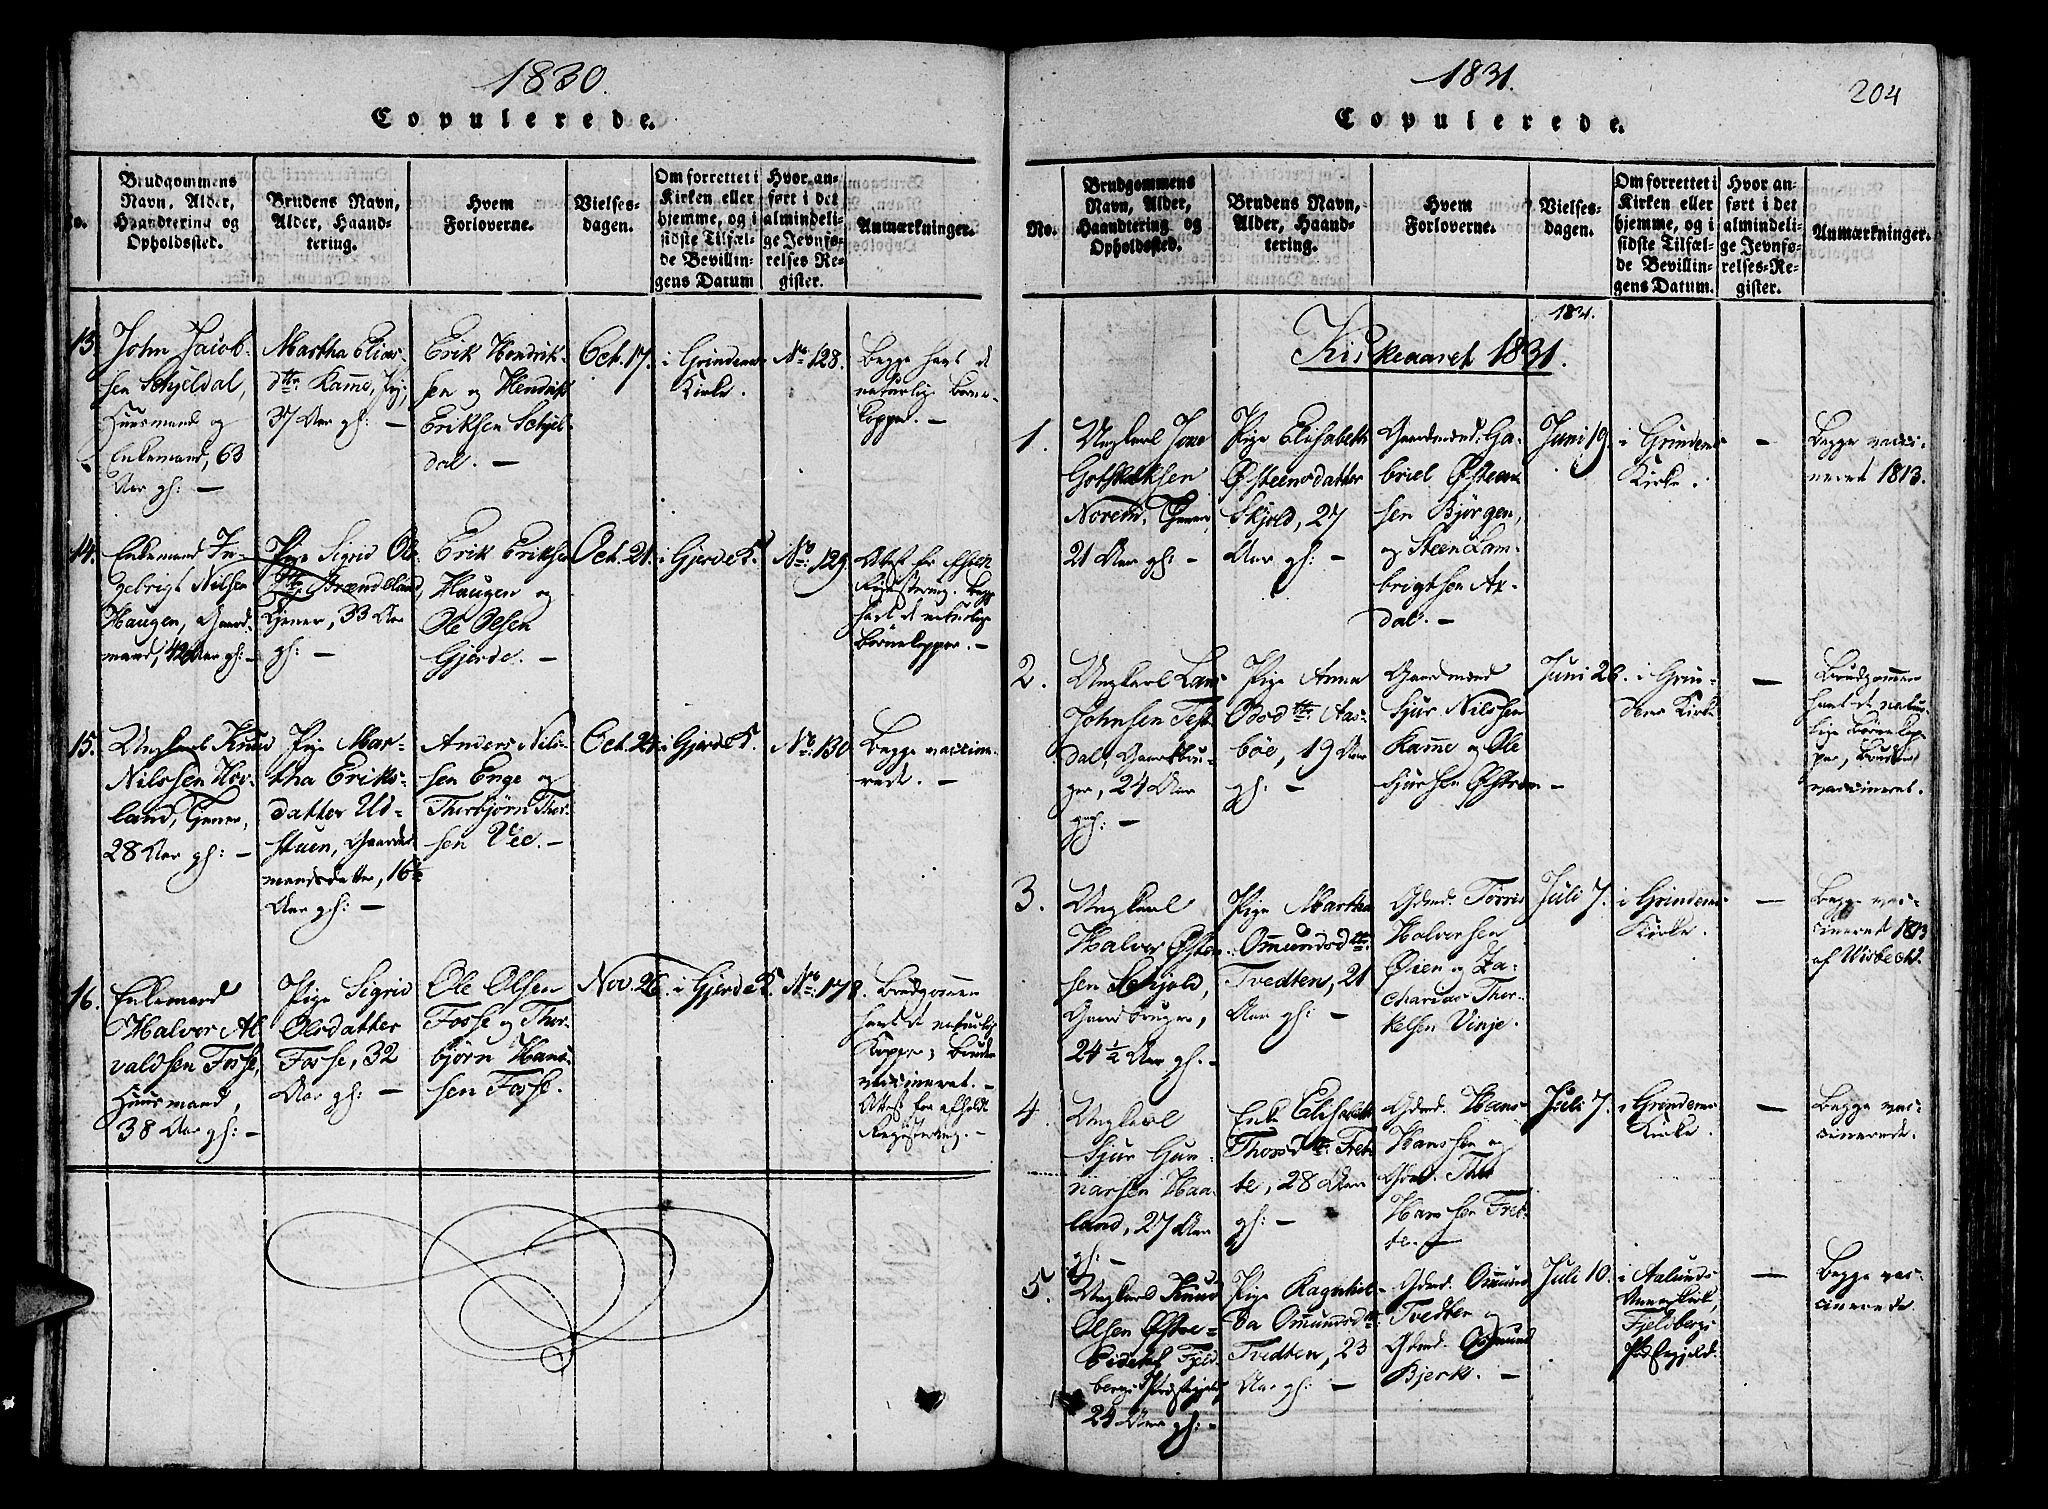 1830.
Copulerede.
No.
Brudgommens
Navn, Alder,
Haandtering og
Opholdssted.
Brudens Navn,
Alder, Haand-
tering.
Hvem
Forloverne.
Vielses-
dagen.
Om forrettet i
Kirken eller
hjemme, og i
sidste Tilfæl-
de Bevillin-
gens Datum
Hvor an-
ført i det
almindeli-
ge Jevnfø-
relses Re-
gister.
Anmærkninger.
13.
John Jacob-
sen Schjeldal,
Huusmand og
Enkemand, 63
Aar gl: —
Martha Elias-
dtr: Kamme, Pige,
37 Aar gl: —
Erik Hendrik-
sen og Hendrik
Eriksen Schjel-
dal. —
Oct. 17.
i Grindens
Kirke.
No. 128.
Begge havt de
naturlige Børne-
kopper. —
14.
Enkemand In-
gebrigt Nilsen
Haugen, Gaard-
mand, 42 Aar gl: —
Pige Sigrid Ols-
dtr: Brændeland,
Tjener, 33 Aar
gl: —
Erik Eriksen
Haugen og
Ole Olsen
Gjerde. —
Oct. 24.
i Gjerde K.
No. 129
Attest for afholdt
Registering. Begge
havt de naturlige
Børnekopper. —
15.
Ungkarl Knud
Nilssen Hov-
land, Tjener,
28 Aar gl: —
Pige Mar-
tha Eriks-
datter Ud-
stuen, Gaard-
mandsdatter, 16½
Aar gl: —
Anders Nils-
sen Enge og
Thorbjørn Thor-
sen Vee. —
Oct. 24.
i Gjerde K.
No. 130
Begge vaccine-
rede. —
16.
Enkemand
Halvor Al-
valdsen Fosse,
Huusmand,
38 Aar gl: —
Pige Sigrid
Olsdatter
Fosse, 32
Aar gl: —
Ole Olsen
Fosse og Thor-
bjørn Hans-
sen Fosse.
Nov. 26.
i Gjerde K.
No. 178.
Brudgommen
havt de naturlige
Kopper, Bruden
vaccineret. —
Attest for afholdt
Registering. —
1831.
204
Copulerede.
No.
Brudgommens
Navn, Alder,
Haandtering og
Opholdssted.
Brudens Navn,
Alder, Haand-
tering.
Hvem
Forloverne.
Vielses-
dagen.
Om forrettet i
Kirken eller
hjemme, og i
sidste Tilfæl-
de Bevillin-
gens Datum.
Hvor an-
ført i det
almindeli-
ge Jevnfø-
relses-Re-
gister.
Anmærkninger.
1831.
Kirkeaaret 1831.
1.
Ungkarl Jone
Gotskalksen
Norem, Tjener,
21 Aar gl: —
Pige Elisabeth
Østeensdatter
Skjold, 27
Aar gl: —
Gaardmænd: Ga-
briel Østeen-
sen Bjørgen,
og Steen Lam-
brigtsen Ax-
dal. —
Juni 19.
i Grindens
Kirke.
—
Begge vacci-
neret 1813.
2.
Ungkarl Lars
Johnsen Test-
dal, Gaardbru-
ger, 24 Aar
gl: —
Pige Anna
Odsdtr: Aas-
bøe, 19 Aar
gl: —
Gaardmænd
Sjur Nilssen
Kamme og Ole
Sjursen Østrem —
Juni 26.
i Grin-
dens Kirke
—
Brudgommen
havt de natur-
lige Børnekop-
per, Bruden
vaccineret.
3.
Ungkarl
Halvor Østen-
sen Schjold,
Gaardbruger,
24½ Aar gl. —
Pige Martha
Ommundsdtr:
Tvedten, 21
Aar gl: —
Gdmd. Torris
Halversen
Øien og Za-
charias Thor-
kelsen Vinje.
Juli 7.
i Grindens
Kirke.
—
Begge vac-
cineret 1813
af Wisbech.
4.
Ungkarl
Sjur Gun-
narsen Haa-
land, 27 Aar
gl: —
Enke Elisabeth
Thorsdtr: Fret-
te, 28 Aar
gl: —
Gdmd. Hans
Hanssen og
Gdmd. Thor
Hanssen Fret-
te. —
Juli 7.
i Grindens
Kirke.
—
Begge vac-
cinerede.
5.
Ungkarl Knud
Olsen Østre-
Eidetel Fjeld-
bergs Præstegjeld,
24 Aar gl: —
Pige Ragnhil-
da Omundsdtr:
Tvedten, 23
Aar gl: —
Gdmd. Ommund
Tvedten og
Gdmd. Osmund
Bjerk. —
Juli 10.
i Aalunds
Annexkirke,
Fjeldbergs
Præstegjeld.
—
Begge vac-
cinerede